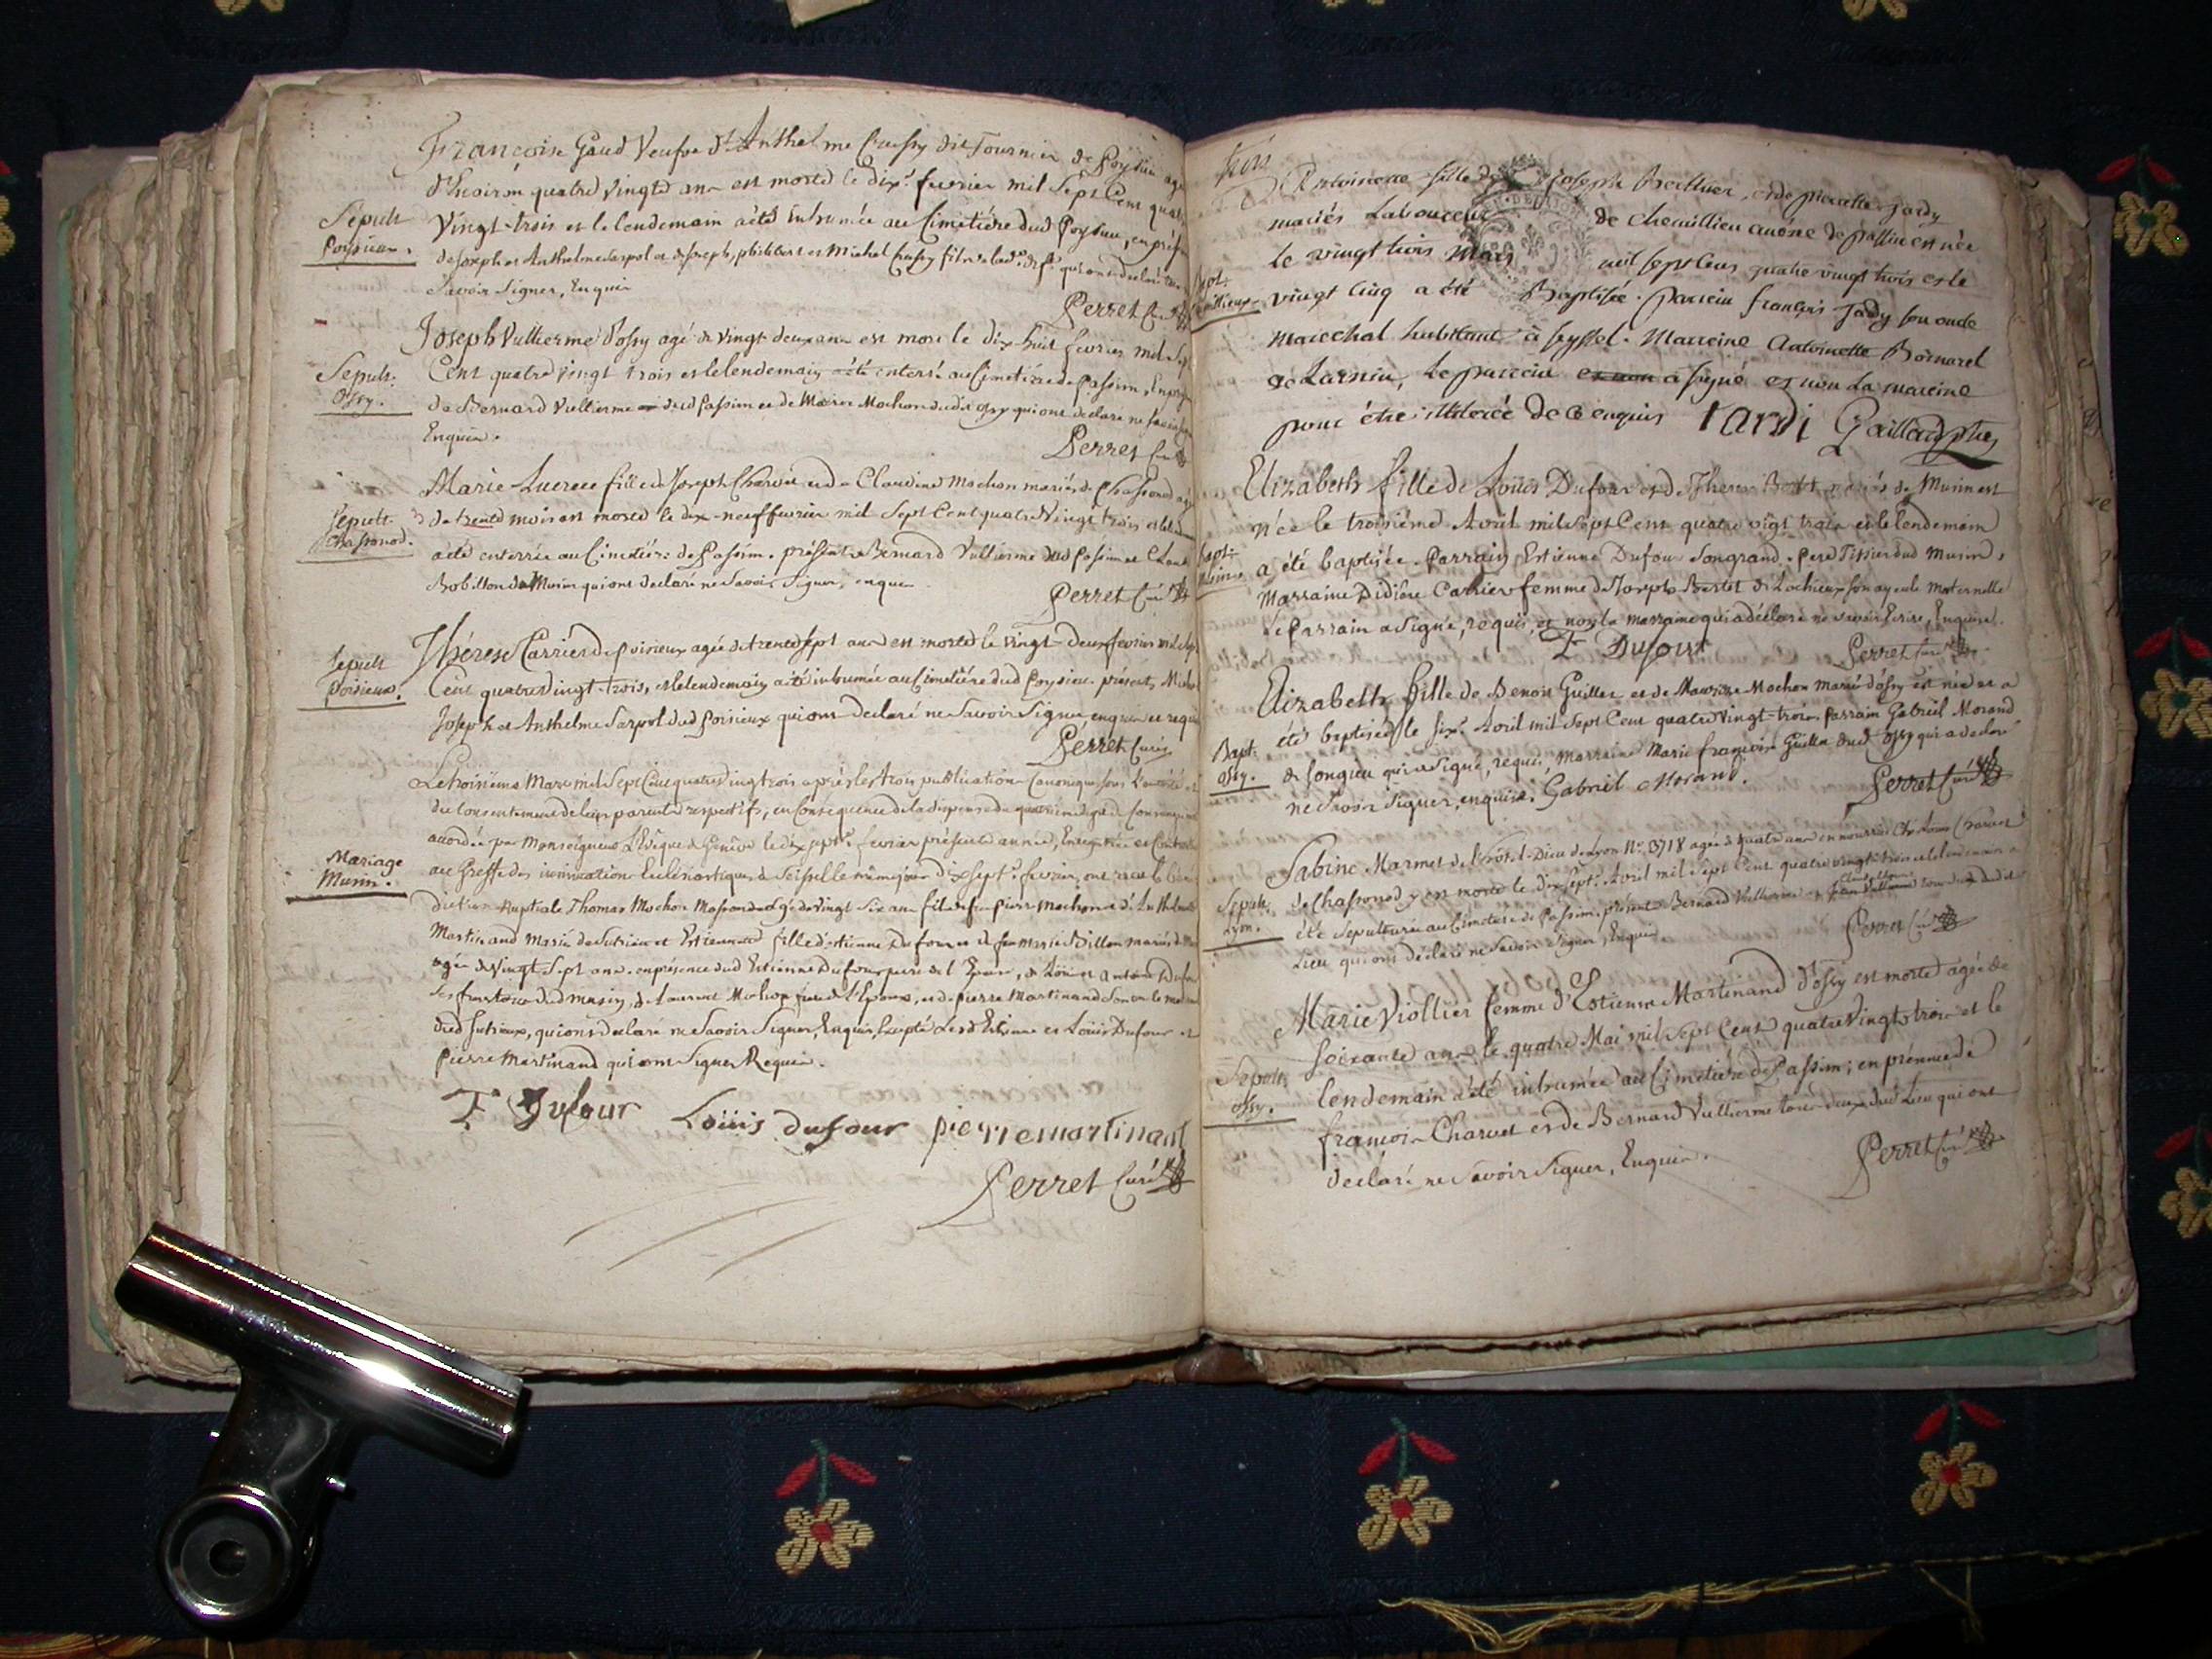 Françoise Gaud Veufve d'Anthelme Crussy dit Tournier de Poysieu agé
d'environ quatre vingt ans est morte le dix.e fevrier mil sept Cent quatre
Sepult. Poysieux.
Vingt-trois et le lendemain a été inhumée au Cimetiére dud Poysieu, en présen
de Joseph et Anthelme Sarpol et de Joseph, philibert et Michel Crussy fils
Savoir Signer, Enquis
Perret Curé
Joseph Vullierme d'ossy agé de vingt deux ans est mort le dix huit fevrier mil Sept
Sepult. Ossy.
Cent quatre vingt trois et le lendemain a été enterré au Cimetiére de Passim, En pres
de Bernard Vullierme dud Passim et de Mochon dudit ossy qui ont declaré ne Savoir
Enquis.
Perret Curé
Marie Lucrece fille de Joseph Charvet et de Claudine Mochon mariés de Chassonod agé
Sepult. Chassonod.
de trente mois est morte le dix-neuf fevrier mil Sept Cent quatre Vingt trois et le lendem
a été enterrée au Cimetiére de Passim. présents Bernard Vullierme dud Passim et Claude
Bobillon de Musin qui ont declaré ne Savoir Signer, enquis
Perret Curé
Thérese Carrier de poisieux agée de trente sept ans est morte le vingt-deux fevrier mil Sept
Sepult. Poisieux.
Cent quatre Vingt-trois, et le lendemain a été inhumée au Cimetiére dud Poysieu. présents, Michel
Joseph et Anthelme Sarpol dud Poisieux qui ont declaré ne Savoir Signer enquis et requis
Perret Curé
Le troisième Mars mil Sept Cent quatre vingt trois après les trois publications Canoniques
du Consentement de leurs parents respectifs, en Consequence de la dispense du quatrieme degré de Consanguinité
accordée par Monseigneur L'Evêque de Genève le dix sept.e fevrier présente année, Enregistrée et Controlée
Mariage Musin.
au Greffe des insinuations Eclésiastiques de Seisselle même jour dix Sept.e fevrier, ont recu la béné
diction Nuptiale Thomas Mochon Masson dud agé de Vingt Six ans fils de feu Pierre Mochon et d'Anthelmette
Martinand mariés de Sutrieux et Estiennette fille d'Estienne Dufour et de feu Marie Billon mariés de
agée de Vingt Sept ans. en présence dud Estienne Dufour pere de l'Epouse, de Louis et Antoine Dufour
Ses freres tous dud Musin, de Laurent Mochon frere de L'Epoux, et de pierre Martinand Son oncle maternel
dud Sutrieux, qui ont declaré ne Savoir Signer, Enquis, Excepté Lesd Estienne et Louis Dufour et
Pierre Martinand qui ont Signer Requis.
E Dufour Loüis dufour pierre martinant
Perret Curé
Antoinette fille de Joseph Beillier, et de Pierrette Jardy
mariés Laboureur de Chemillieu anéxe de passin est née
le vingt trois Mars mil sept Cens quatre vingt trois et le
vingt Cinq a été Baptisée. parrein françois Jardy son oncle
marechal habitant à seyssel. Marreine Antoinette Bornarel
de Larnin, Le parrein a signé et non La marreine
pour être illiterée de ce enquis Iardi Gaillard
Elizabeth fille de Loüis Dufour et de Therese Bertet mariés de Musin est
née le troisiéme Avril mil Sept Cent quatre vigt trois et le lendemain
Bapt. Musin
a été baptisée. Parrain Estienne Dufour Son grand-pere Tissier dud Musin,
Marraine Didiére Carrier femme de Joseph Bertet de Lochieux son ayeule Maternelle
Le Parrain a Signé, requis, et non la marraine qui a déclaré ne Savoir Ecrire, Enquise.
E Dufour Perret Curé
Elizabeth fille de Benoit Guillet et de Maurize Mochon Mariés d'ossy est née et a
été baptisée le six.e Avril mil Sept Cent quatre Vingt-trois. Parrain Gabriel Morand
Bapt. Ossy.
de Songieu qui a Signé, requis, Marraine Marie françoise Guillet dud Ossy qui a declaré
ne Savoir Signer, enquise. Gabriel Morand. Perret Curé
Sabine Marmet de l'hôtel-Dieu de Lyon N.o 3718 agée de quatre ans en nourrice Chez Charvet
de Chassonod y est morte le dix Sept. Avril mil Sept Cent quatre vingt trois et le lendemain a
Sepult. Lyon.
été Sepulturée au Cimetiere de Passim. présents Bernard Vullierme et Jean Vullierme tous deux dud
Lieu qui ont declaré ne Savoir Signer, Enquis.
Perret Curé
Marie Viollier femme d'Estienne Martinand d'ossy est morte agée de
Soixante ans le quatre Mai mil Sept Cent quatre Vingt trois et le
Sepult. Ossy.
lendemain a été inhumée au Cimetiére de Passim; en présence de
françois Charvet et de Bernard Vullierme tous deux dud Lieu qui ont
déclaré ne Savoir Signer, Enquis.
Perret Curé